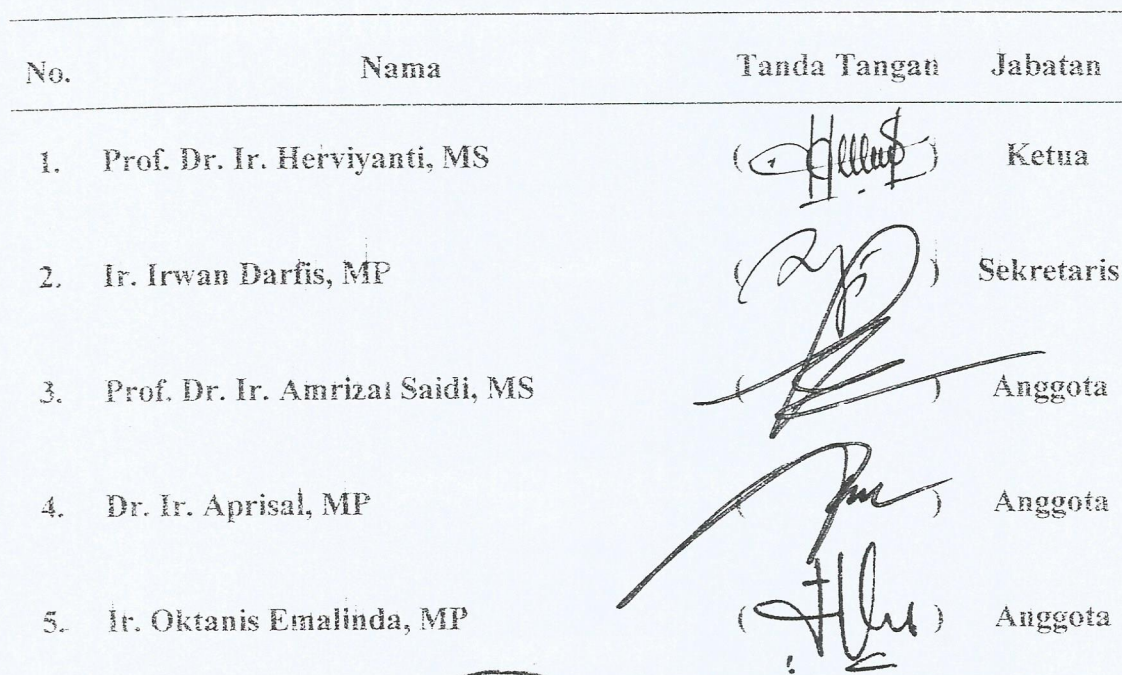 No. Nama Tanda Tangan Jabatan
1. Prof. Dr. Ir. Herviyanti, MS ( ) Ketua
2. Ir. Irwan Darfis, MP ( ) Sekretaris
3. Prof. Dr. Ir. Amrizal Saidi, MS ( ) Anggota
4. Dr. Ir. Aprisal, MP ( ) Anggota
5. Ir. Oktanis Emalinda, MP ( ) Anggota